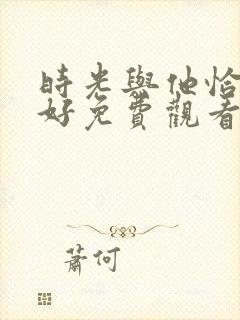 時光與他恰
好免費觀看
蕭何